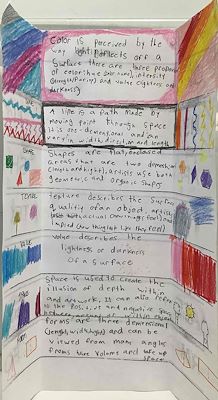 Color is perceived by the
way light reflects off a
surface there are three properties
of color: hue intensity
and value (lightness and
darkness)
LINE
A line is a path made by
moving point through space
It is one-dimensional and can
vary in width, direction and length
SHAPE
Shapes are flat, enclosed
areas that are two dimensional
(length and height), artists use both
geometric and organic shapes
TEXTURE
texture describes the surface
quality of an object, artists
use both actual (how things feel) and
implied (how they look like they feel)
VALUE
value describes the
lightness or darkness
Of a surface
Space is used to create the
illusion of depth within
and artwork, It can also refer
to the Positive and negative space
forms are three dimensional
(length, width, height) and can be
viewed from many angles
forms take volume and take up
space